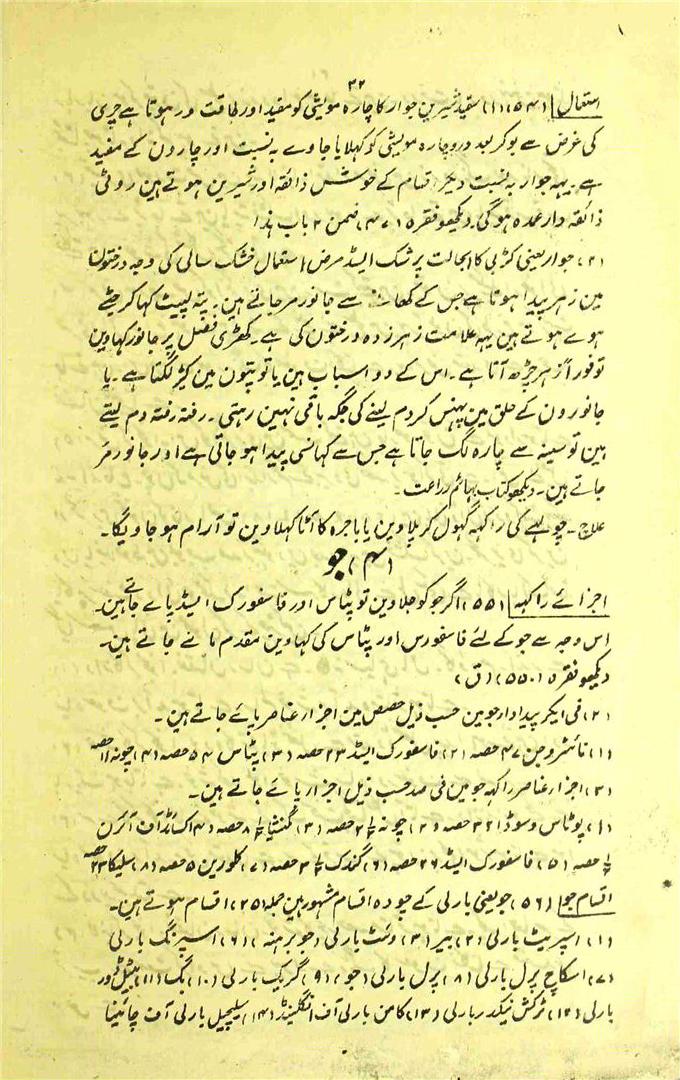 ۳۲
استعمال (۵۴) (۱) سفید شیرین جوار کا چارہ مویشی کو مفید اور طاقت ور ہوتا ہے چری
کی غرض سے بوکر بعد درو چارہ مویشی کو کہلایا جاوے بہ نسبت اور چارون کے مفید
ہے۔ یہہ جوار بہ نسبت دیگر اقسام کے خوش ذائقہ اور شیرین ہوتے ہین روٹی
ذائقہ دار عمدہ ہوگی۔ دیکھو فقرہ (۴۷) ضمن ۲ باب ہذا
(۲) جوار یعنی کڑبی کا بحالت پرشک ایسڈ مرض استعمال خشک سالی کی وجہ درختون
مین زہر پیدا ہوتا ہے جس کے کھانے سے جانور مرجاتے ہین۔ پتہ لپیٹ کہا کر چٹے
ہوے ہوتے ہین یہہ علامت زہر زدہ درختون کی ہے۔ کھڑی فصل پر جانور کہاوین
تو فوراً زہر چڑھ آتا ہے۔ اس کے دو اسباب ہین یا تو پتون مین کیڑ لگتا ہے۔ یا
جانورون کے حلق مین پہنس کر دم لینے کی جگہ باقی نہین رہتی۔ رفتہ رفتہ دم لیتے
ہین تو سینہ سے چارہ لگ جاتا ہے جس سے کہانسی پیدا ہو جاتی ہے اور جانور مر
جاتے ہین۔ دیکھو کتاب بہائم زراعت۔
علاج۔ چولہے کی راکہہ گہول کر پلاوین یا باجرہ کا آٹا کہلاوین تو آرام ہو جاویگا۔
(۴) جو
اجزائے راکہہ (۵۵) اگر جو کو جلاوین تو پٹاس اور فاسفورک ایسڈ پاے جاتے ہین۔
اس وجہ سے جو کے لئے فاسفورس اور پٹاس کی کہاوین مقدم مانے جاتے ہین۔
دیکھو فقرہ (۵۵۰) (ق)
(۲) فی ایکر پیداوار جو مین حسب ذیل حصص مین اجزار عناصر پائے جاتے ہین۔
(۱) نائٹروجن ۴۷ حصہ (۲) فاسفورک ایسڈ ۲۳ حصہ (۳) پٹاس ۵۴ حصہ (۴) چونہ ۱۱ حصہ
(۳) اجزار عناصر راکہہ جو مین فی صد حسب ذیل اجزار پائے جاتے ہین۔
(۱) پوٹاس و سوڈا ۳۲ حصہ (۲) چونہ ۲½ حصہ (۳) گنشیا ۸½ حصہ (۴) اکسائڈ آف آئرن
½ حصہ (۵) فاسفورک ایسڈ ۲۶ حصہ (۶) گندک ۳½ حصہ (۷) کلورین ۵ حصہ (۸) سلیکا ۲۳ حصہ
اقسام جو (۵۶) جو یعنی بارلی کے چودہ اقسام مشہور ہین جملہ (۲۵) اقسام ہوتے ہین۔
(۱) اسپریٹ بارلی (۲) بیر (۳) وہٹ بارلی (جو برہنہ) (۶) اسپرنگ بارلی
(۷) اسکاچ پرل بارلی (۸) پرل بارلی (جو) (۹) گریک بارلی (۱۰) بگ (۱۱) بیٹل ڈور
بارلی (۱۲) ٹرکش نیکڈ بارلی (۱۳) کامن بارلی آف انگلینڈ (۱۴) سلیچیل بارلی آف چائینا